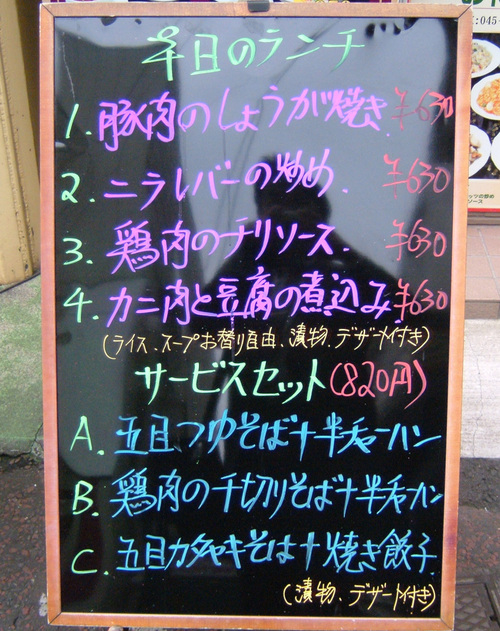 平日のランチ
1. 豚肉のしょうが焼き ¥630
2. ニラレバーの炒め. ¥630
3. 鶏肉のチリソース. ¥630
4. カニ肉と豆腐の煮込み ¥630
(ライス、スープお替り自由、漬物、デザート付き)
サービスセット(820円)
A. 五目つゆそば+半チャーハン
B. 鶏肉の千切りそば+半チャーハン
C. 五目カタヤキそば+焼き餃子
(漬物、デザート付き)